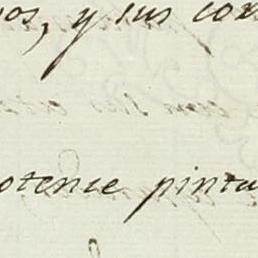 os, y sus cor
otence pintu